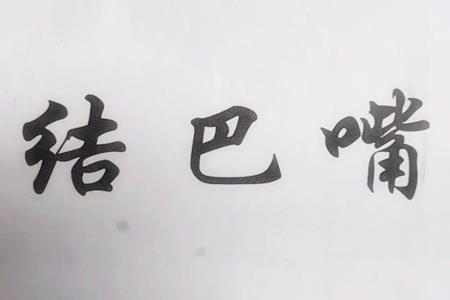 结巴嘴